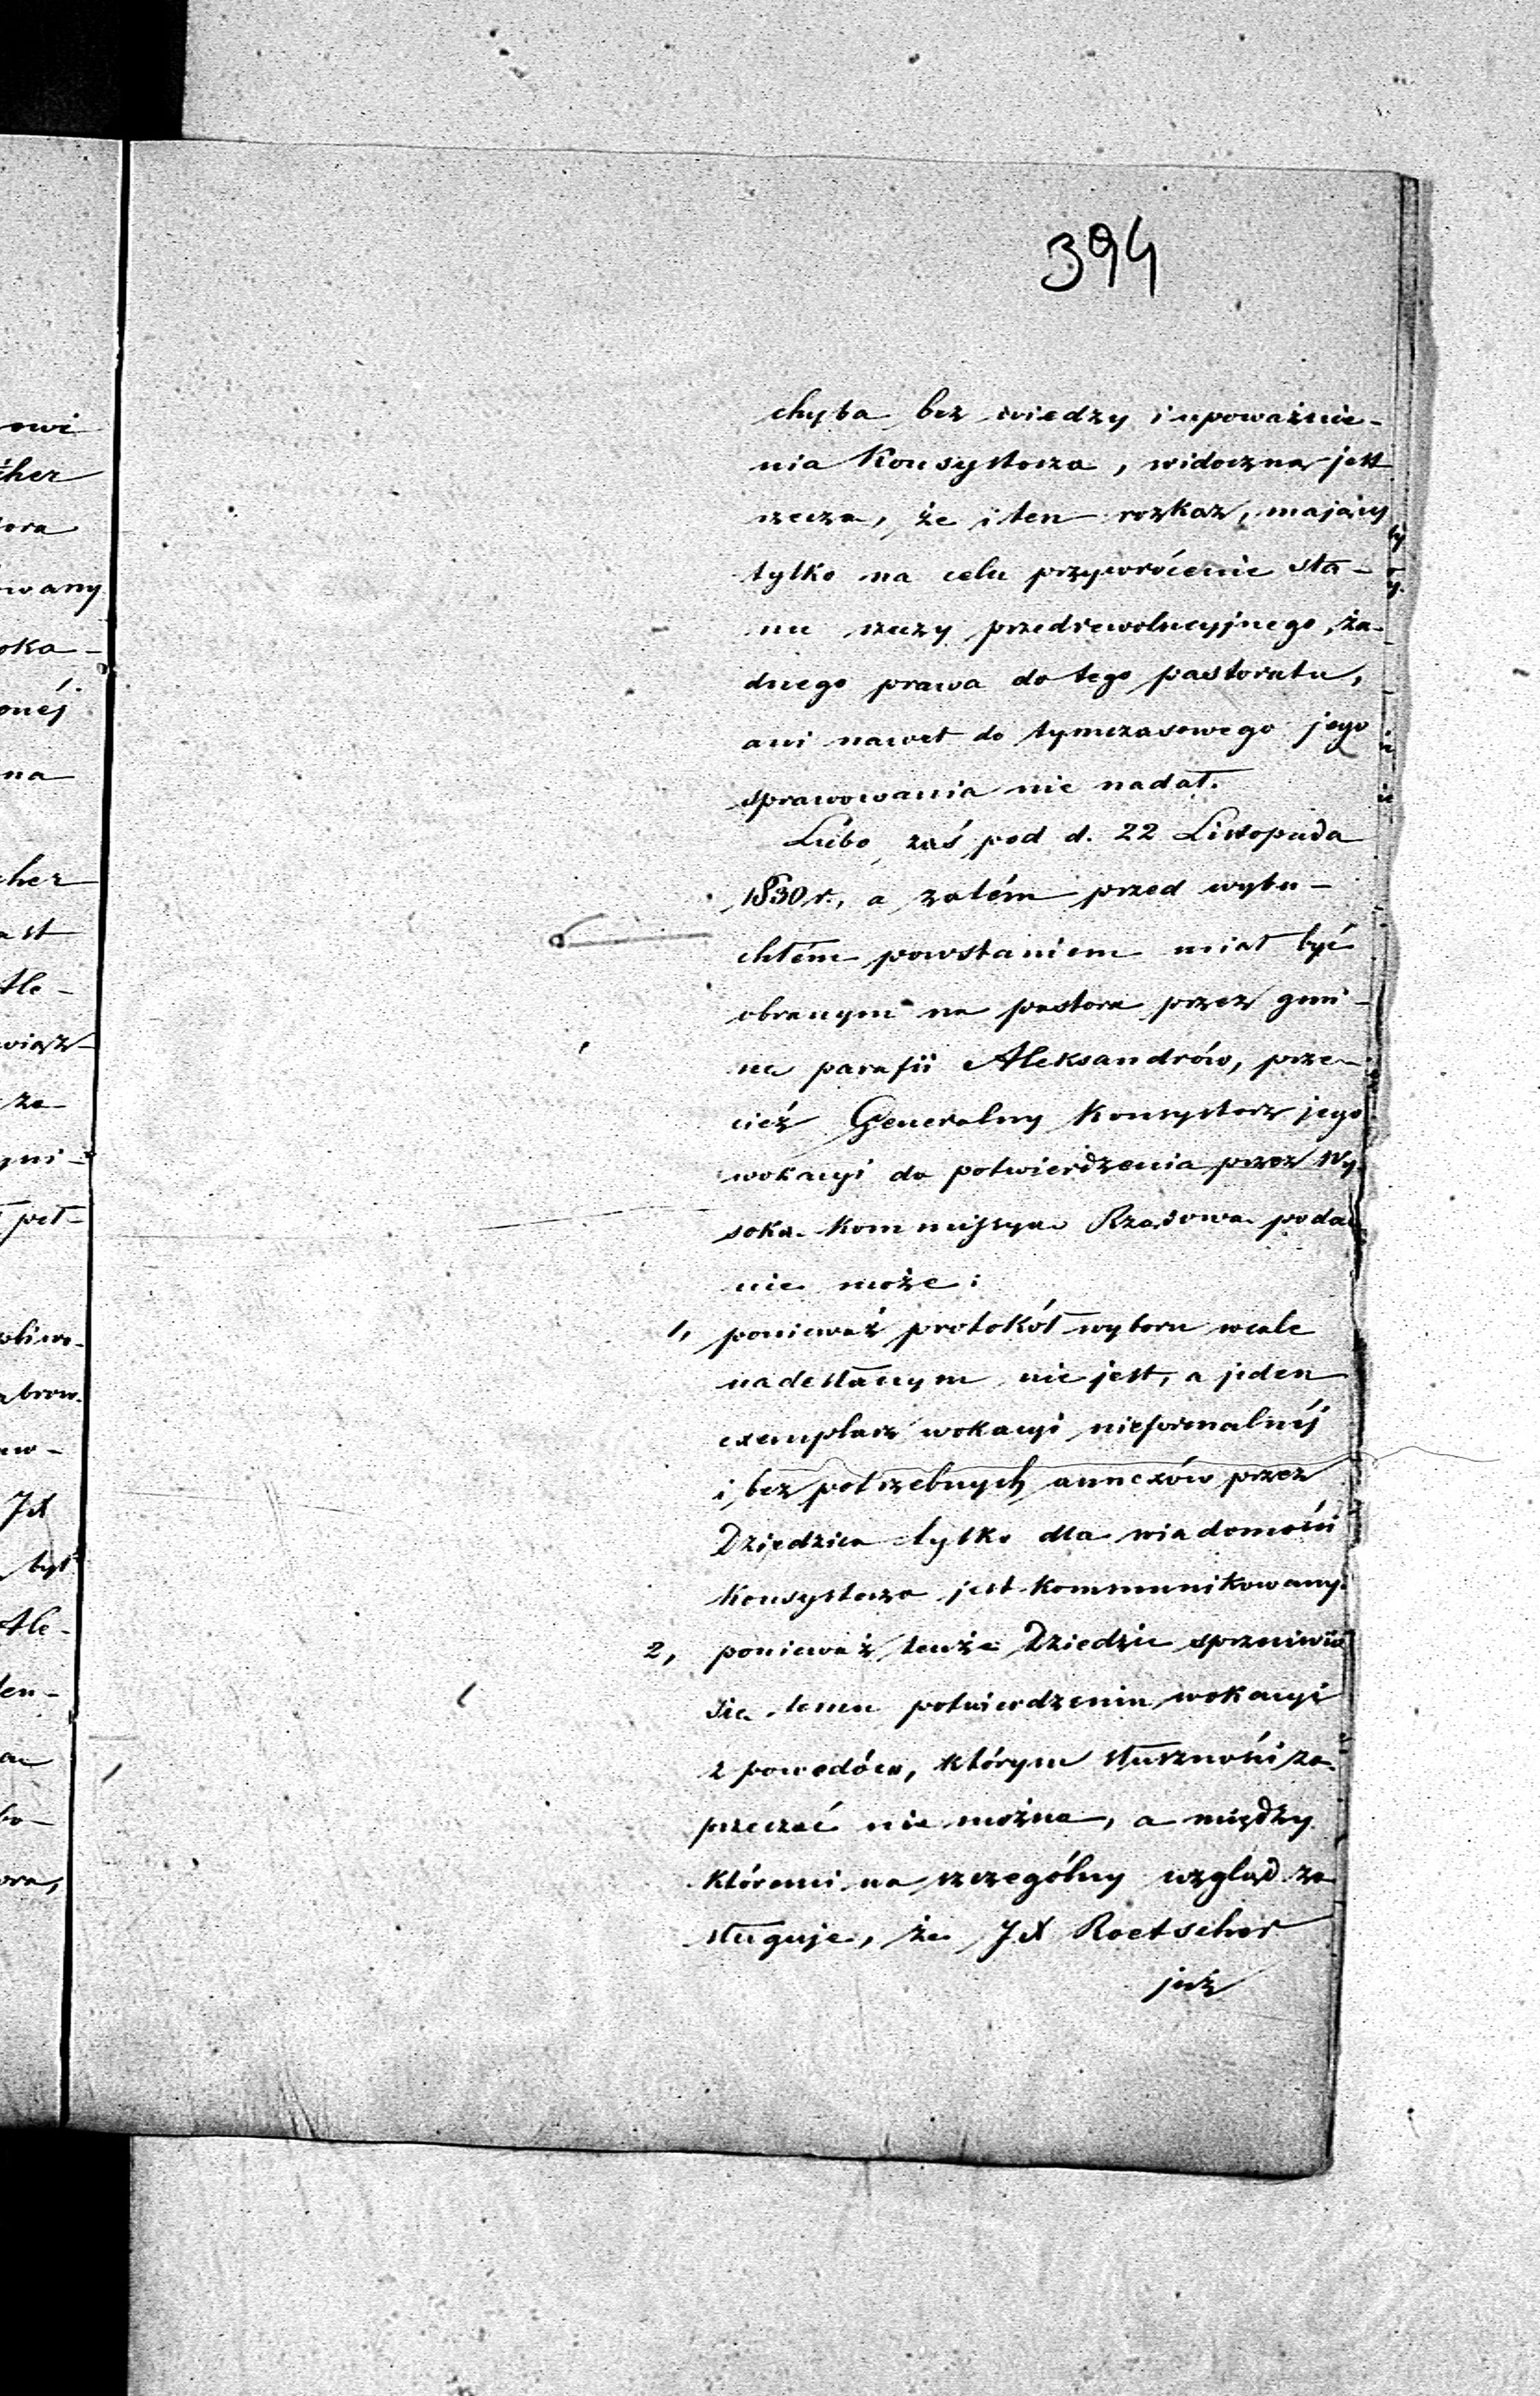 394
chyba bez wiedzy i upoważnie-
nia Konsystorza, widoczna jest
rzecza, że i ten rozkaz, mający
tylko na celu przywrócenie sta-
nu rzeczy przedrewolucyjnego, ża-
dnego prawa do tego pastoratu,
ani nawet do tymczasowego jego
sprawowania nie nadał.
Lubo zaś pod d. 22 Listopada
1830 r., a zatém przed wybu-
chłém powstaniem miał być
obranym na pastora przez gmi-
nę parafii Aleksandrów, prze-
cież Generalny Konsystorz jego
wokacyi do potwierdzenia przez Wy-
soką Kommissyą Rządową podać
nie może:
1, ponieważ protokół wyboru wcale
nadesłanym nie jest, a jeden
exemplarz wokacyi nieformalnéj
i bez potrzebnych annexów przez
Dziedzica tylko dla wiadomości
Konsystorza jest kommunikowany.
2, ponieważ tenże Dziedzic sprzeciwia
się temu potwierdzeniu wokacyi
z powodów, którym słuszności za-
przeczać nie można, a między
któremi na szczególny wzgląd za
sługuje, że JX Roetscher
już
owi
cher
tora
owany
oka-
onéj
na
cher
ast
Ale-
wiąz-
za
gmi-
peł-
JX
był
Ale-
ten-
bo-
ora,